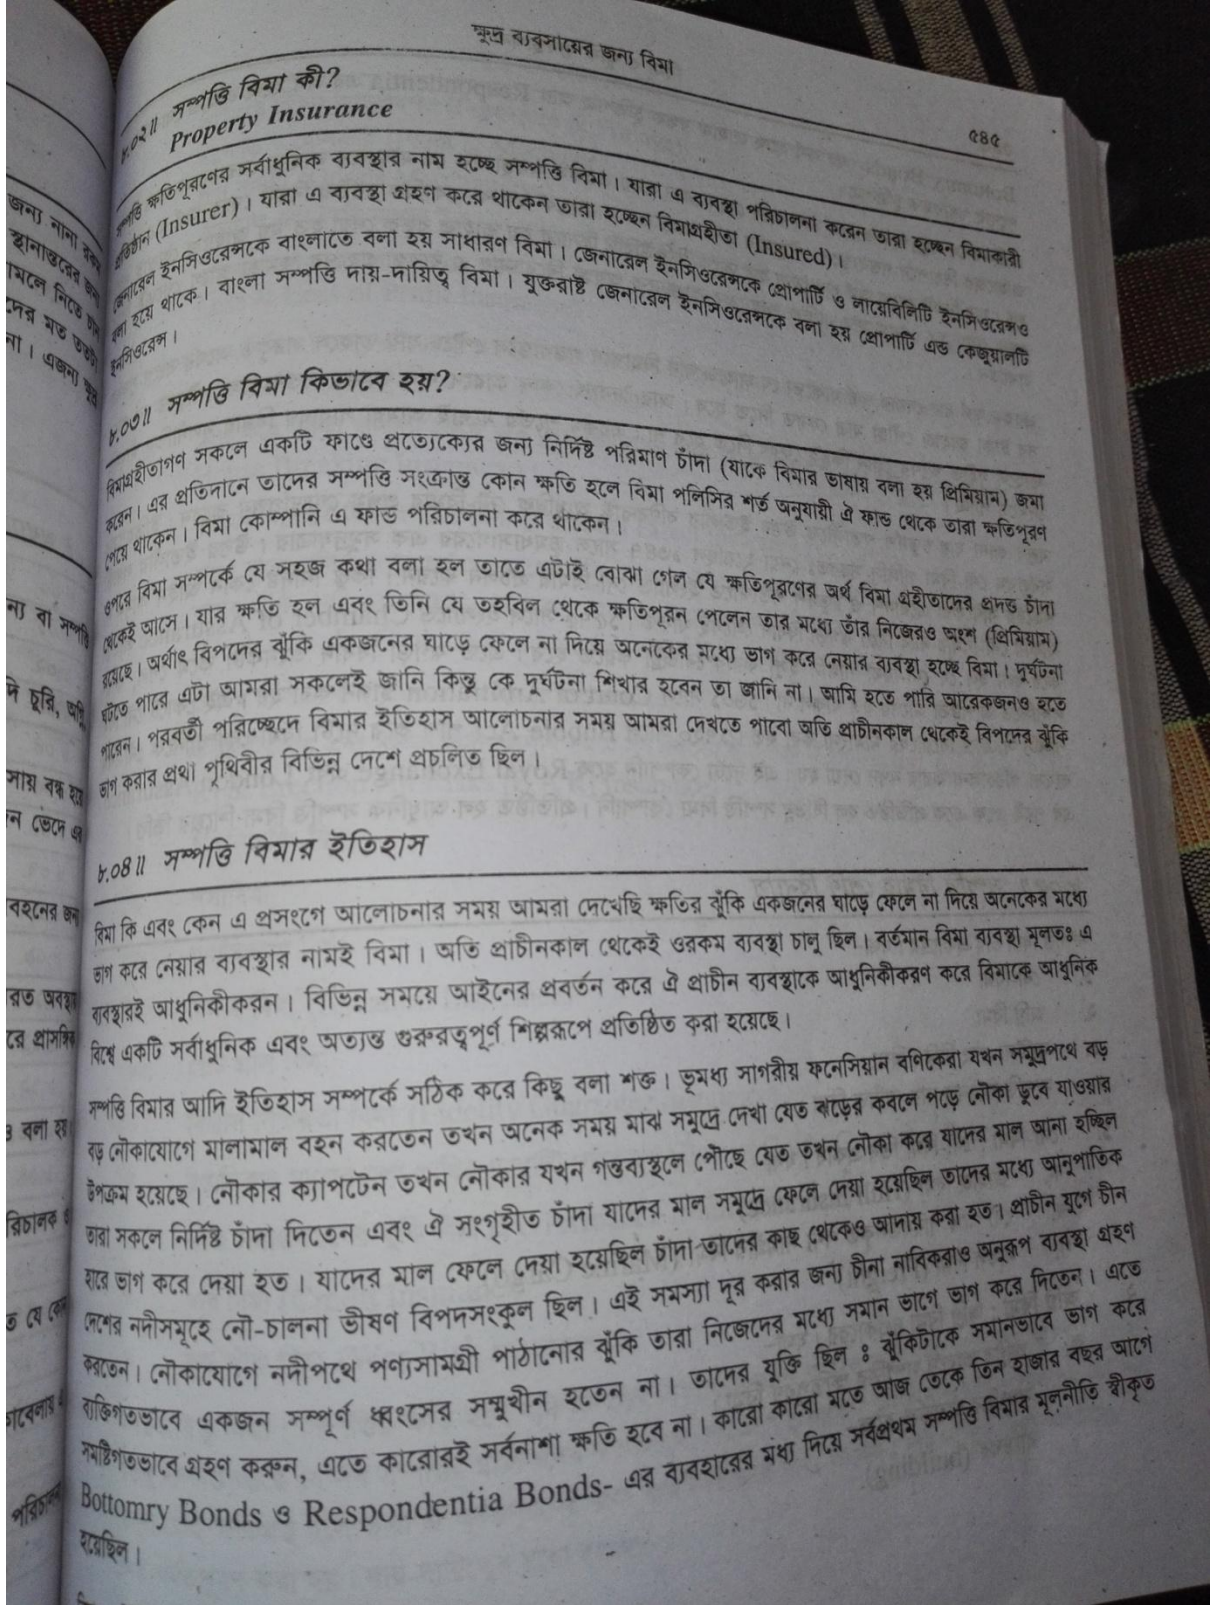 ক্ষুদ্র ব্যবসায়ের জন্য বিমা
৫৪৫
৮.০২॥ সম্পত্তি বিমা কী?
Property Insurance
সম্পত্তি ক্ষতিপূরণের সর্বাধুনিক ব্যবস্থার নাম হচ্ছে সম্পত্তি বিমা। যারা এ ব্যবস্থা পরিচালনা করেন তারা হচ্ছেন বিমাকারী
প্রতিষ্ঠান (Insurer)। যারা এ ব্যবস্থা গ্রহণ করে থাকেন তারা হচ্ছেন বিমাগ্রহীতা (Insured)।
জেনারেল ইনসিওরেন্সকে বাংলাতে বলা হয় সাধারণ বিমা। জেনারেল ইনসিওরেন্সকে প্রোপার্টি ও লায়েবিলিটি ইনসিওরেন্সও
বলা হয়ে থাকে। বাংলা সম্পত্তি দায়-দায়িত্ব বিমা। যুক্তরাষ্ট্র জেনারেল ইনসিওরেন্সকে বলা হয় প্রোপার্টি এন্ড কেজুয়ালটি
ইনসিওরেন্স।
৮.০৩॥ সম্পত্তি বিমা কিভাবে হয়?
বিমাগ্রহীতাগণ সকলে একটি ফাণ্ডে প্রত্যেক্যের জন্য নির্দিষ্ট পরিমাণ চাঁদা (যাকে বিমার ভাষায় বলা হয় প্রিমিয়াম) জমা
করেন। এর প্রতিদানে তাদের সম্পত্তি সংক্রান্ত কোন ক্ষতি হলে বিমা পলিসির শর্ত অনুযায়ী ঐ ফান্ড থেকে তারা ক্ষতিপূরণ
পেয়ে থাকেন। বিমা কোম্পানি এ ফান্ড পরিচালনা করে থাকেন।
ওপরে বিমা সম্পর্কে যে সহজ কথা বলা হল তাতে এটাই বোঝা গেল যে ক্ষতিপূরণের অর্থ বিমা গ্রহীতাদের প্রদত্ত চাঁদা
থেকেই আসে। যার ক্ষতি হল এবং তিনি যে তহবিল থেকে ক্ষতিপূরন পেলেন তার মধ্যে তাঁর নিজেরও অংশ (প্রিমিয়াম)
রয়েছে। অর্থাৎ বিপদের ঝুঁকি একজনের ঘাড়ে ফেলে না দিয়ে অনেকের মধ্যে ভাগ করে নেয়ার ব্যবস্থা হচ্ছে বিমা। দুর্ঘটনা
ঘটতে পারে এটা আমরা সকলেই জানি কিন্তু কে দুর্ঘটনা শিখার হবেন তা জানি না। আমি হতে পারি আরেকজনও হতে
পারেন। পরবর্তী পরিচ্ছেদে বিমার ইতিহাস আলোচনার সময় আমরা দেখতে পাবো অতি প্রাচীনকাল থেকেই বিপদের ঝুঁকি
ভাগ করার প্রথা পৃথিবীর বিভিন্ন দেশে প্রচলিত ছিল।
৮.০৪॥ সম্পত্তি বিমার ইতিহাস
বিমা কি এবং কেন এ প্রসংগে আলোচনার সময় আমরা দেখেছি ক্ষতির ঝুঁকি একজনের ঘাড়ে ফেলে না দিয়ে অনেকের মধ্যে
ভাগ করে নেয়ার ব্যবস্থার নামই বিমা। অতি প্রাচীনকাল থেকেই ওরকম ব্যবস্থা চালু ছিল। বর্তমান বিমা ব্যবস্থা মূলতঃ এ
ব্যবস্থারই আধুনিকীকরন। বিভিন্ন সময়ে আইনের প্রবর্তন করে ঐ প্রাচীন ব্যবস্থাকে আধুনিকীকরণ করে বিমাকে আধুনিক
বিশ্বে একটি সর্বাধুনিক এবং অত্যন্ত গুরুত্বপূর্ণ শিল্পরূপে প্রতিষ্ঠিত করা হয়েছে।
সম্পত্তি বিমার আদি ইতিহাস সম্পর্কে সঠিক করে কিছু বলা শক্ত। ভূমধ্য সাগরীয় ফনেসিয়ান বণিকেরা যখন সমুদ্রপথে বড়
বড় নৌকাযোগে মালামাল বহন করতেন তখন অনেক সময় মাঝ সমুদ্রে দেখা যেত ঝড়ের কবলে পড়ে নৌকা ডুবে যাওয়ার
উপক্রম হয়েছে। নৌকার ক্যাপটেন তখন নৌকার যখন গন্তব্যস্থলে পৌছে যেত তখন নৌকা করে যাদের মাল আনা হচ্ছিল
তারা সকলে নির্দিষ্ট চাঁদা দিতেন এবং ঐ সংগৃহীত চাঁদা যাদের মাল সমুদ্রে ফেলে দেয়া হয়েছিল তাদের মধ্যে আনুপাতিক
হারে ভাগ করে দেয়া হত। যাদের মাল ফেলে দেয়া হয়েছিল চাঁদা তাদের কাছ থেকেও আদায় করা হত। প্রাচীন যুগে চীন
দেশের নদীসমূহে নৌ-চালনা ভীষণ বিপদসংকুল ছিল। এই সমস্যা দূর করার জন্য চীনা নাবিকরাও অনুরূপ ব্যবস্থা গ্রহণ
করতেন। নৌকাযোগে নদীপথে পণ্যসামগ্রী পাঠানোর ঝুঁকি তারা নিজেদের মধ্যে সমান ভাগে ভাগ করে দিতেন। এতে
ব্যক্তিগতভাবে একজন সম্পূর্ণ ধ্বংসের সম্মুখীন হতেন না। তাদের যুক্তি ছিল ঃ ঝুঁকিটাকে সমানভাবে ভাগ করে
সমষ্টিগতভাবে গ্রহণ করুন, এতে কারোরই সর্বনাশা ক্ষতি হবে না। কারো কারো মতে আজ তেকে তিন হাজার বছর আগে
Bottomry Bonds ও Respondentia Bonds- এর ব্যবহারের মধ্য দিয়ে সর্বপ্রথম সম্পত্তি বিমার মূলনীতি স্বীকৃত
হয়েছিল।